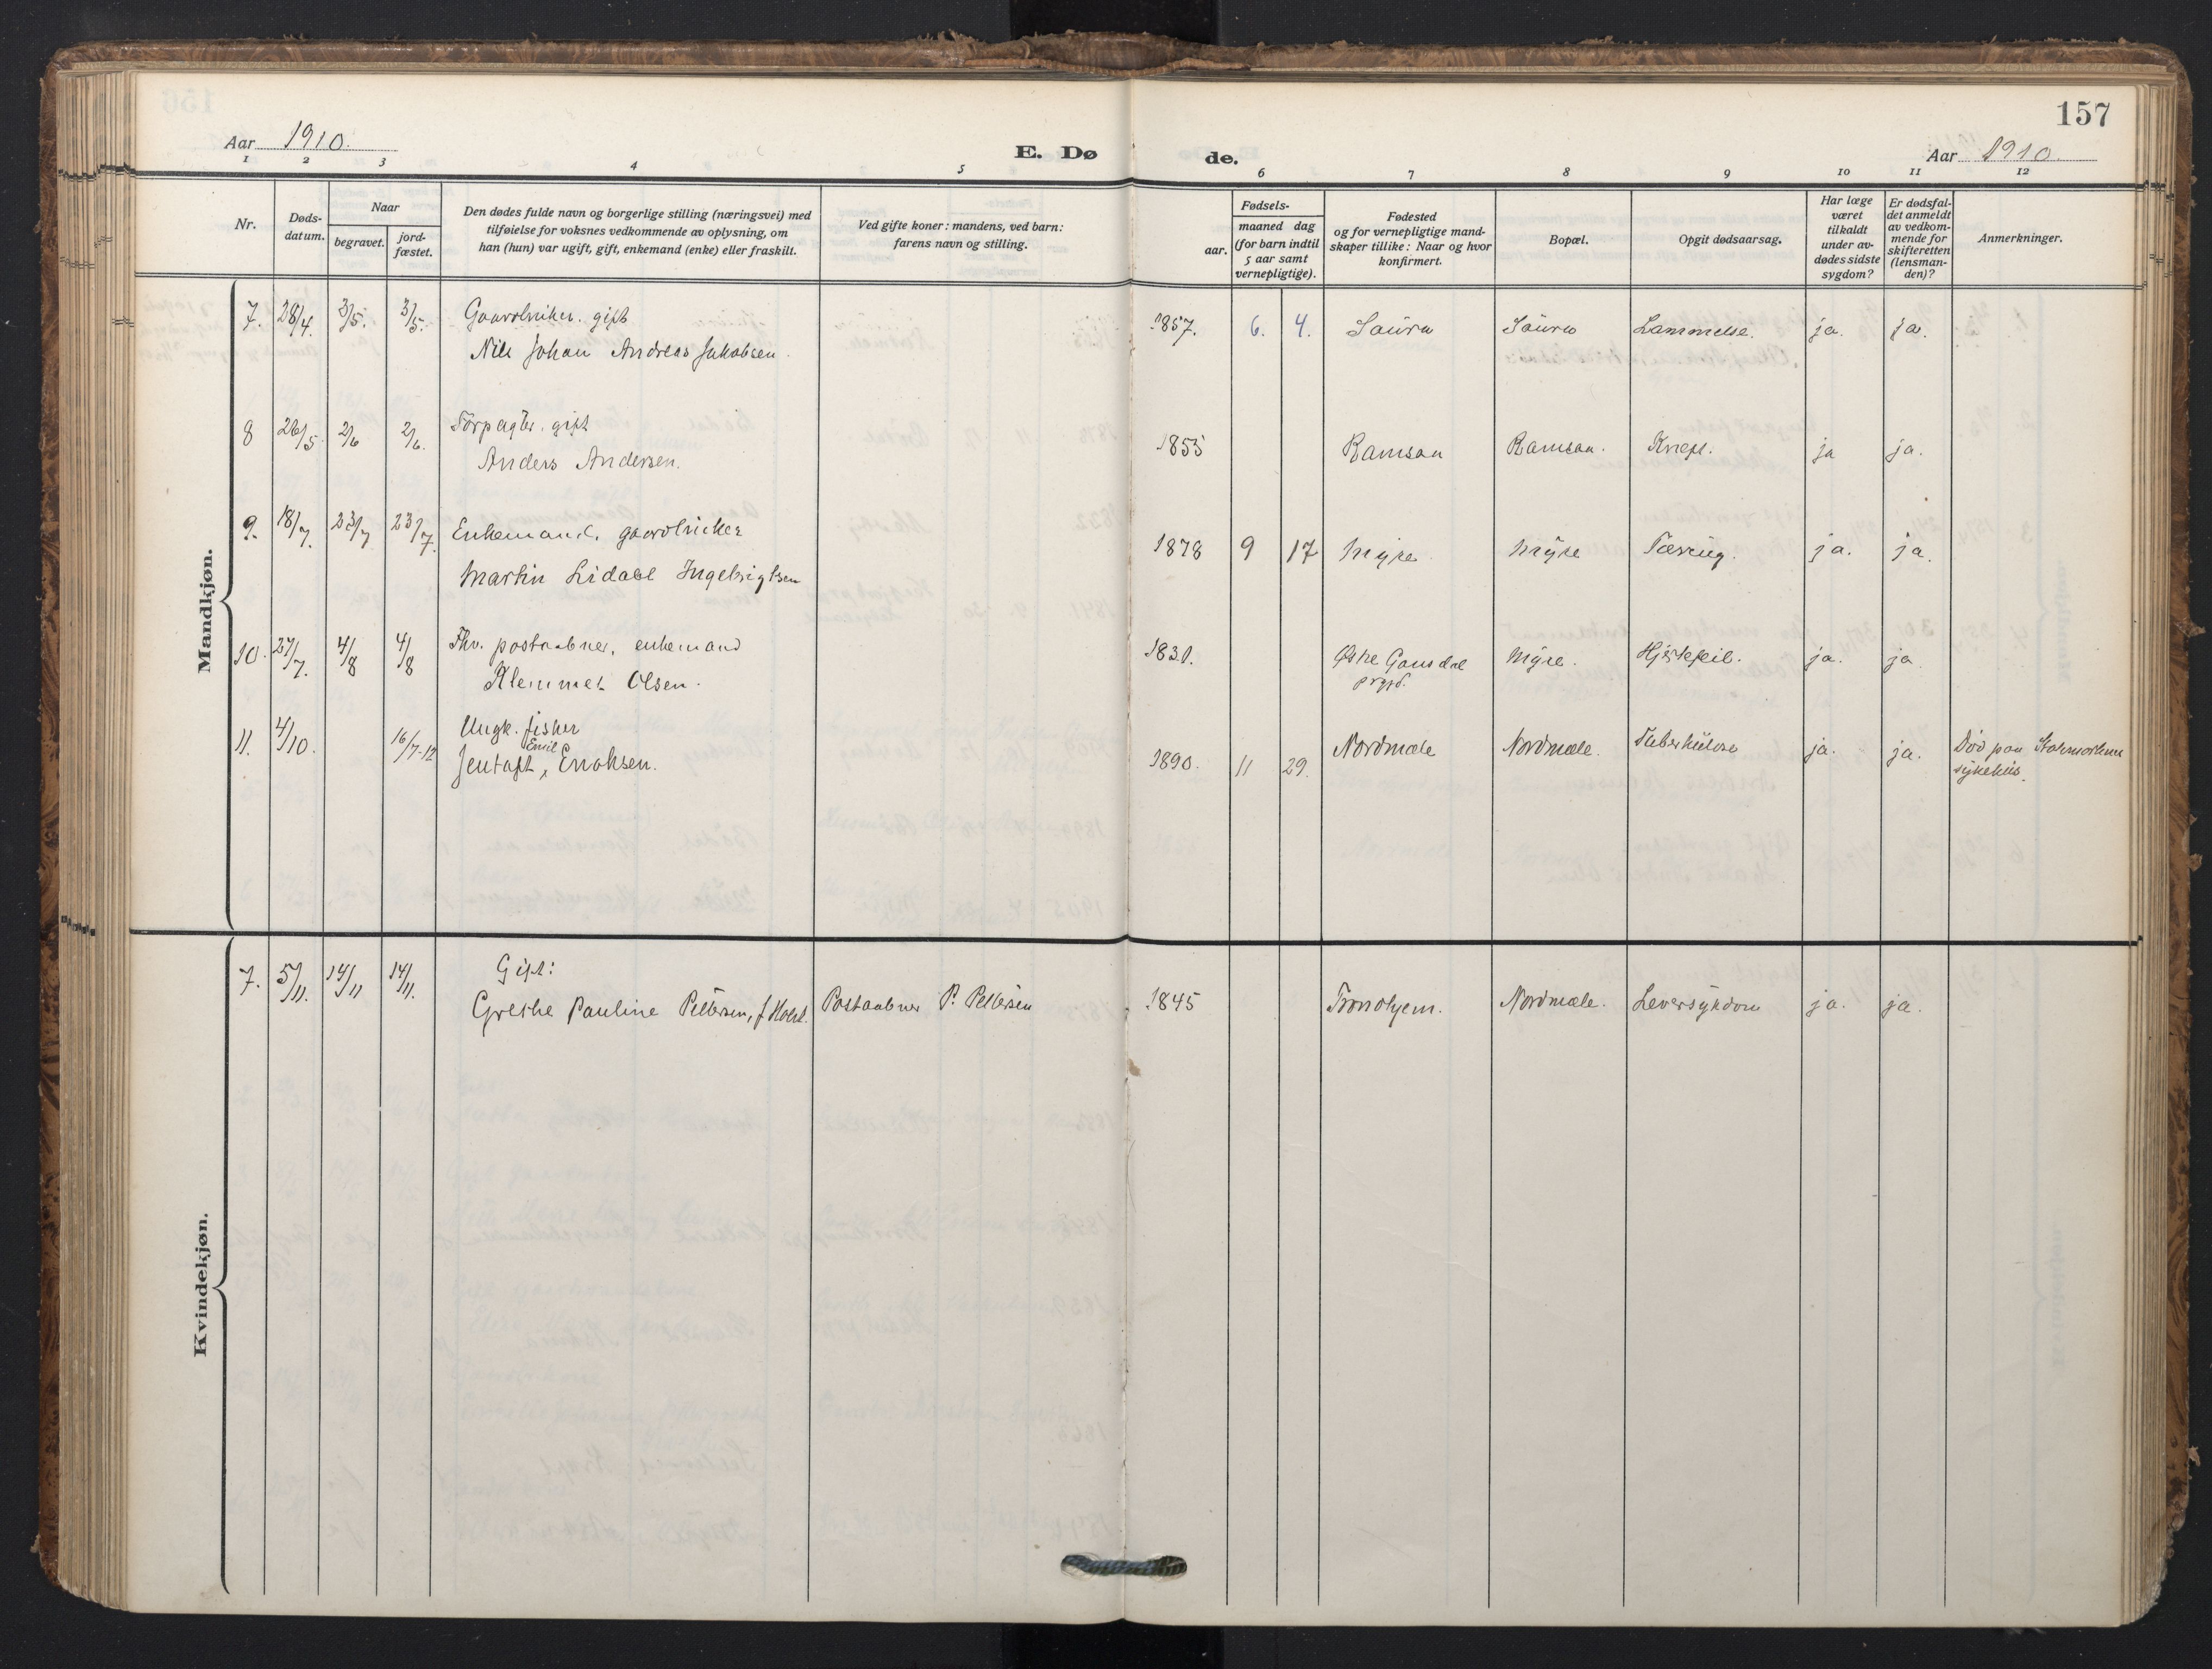 157
Aar 1910.
E. Dø
de.
Aar 1910.
1 2 3 4 5 6 7 8 9 10 11 12
Nr.
Døds-
datum.
Naar
begravet.
jord-
fæstet.
Den dødes fulde navn og borgerlige stilling (næringsvei) med
tilføielse for voksnes vedkommende av oplysning, om
han (hun) var ugift, gift, enkemand (enke) eller fraskilt.
Ved gifte koner: mandens, ved barn:
farens navn og stilling.
Fødsels-
aar.
maaned dag
(for barn indtil
5 aar samt
vernepligtige).
Fødested
og for vernepligtige mand-
skaper tillike: Naar og hvor
konfirmert.
Bopæl.
Opgit dødsaarsag.
Har læge
været
tilkaldt
under av-
dødes sidste
sygdom?
Er dødsfal-
det anmeldt
av vedkom-
mende for
skifteretten
(lensman-
den)?
Anmerkninger.
Mandkjøn.
7. 28/4. 3/5. 3/5. Gaardbruker. gift
Nils Johan Andreas Jakobsen.
1857. 6. 4. Saura Saura Lammelse. ja. ja.
8 26/5. 2/6 2/6. gift
Anders Andersen.
1855 Ramsaa Ramsaa. Kræft. ja ja.
9. 18/7. 23/7 23/7. Enkemand, gaardbruker
Martin Lidahl Ingebrigtsen
1878 9 17 Myre Myre Tæring. ja. ja.
10. 27/7. 4/8 4/8 Fhv. postaabner, enkemand
Klemmet Olsen.
1830. Østre Gausdal
prgjd.
Myre. Hjertefeil. ja. ja
11. 4/10. 16/7-12 Ungk. fisker
Emil
Jentoft, Enoksen.
1890. 11 29. Nordmæle Nordmæle. Tuberkulose ja. ja. Død paa Stokmarknes
sykehus.
Kvindekjøn.
7. 5/11. 14/11 14/11. Gift:
Grethe Pauline Pettersen, f. Holst. Postaabner P. Pettersen 1845 Trondhjem. Nordmæle. Leversykdom ja. ja.